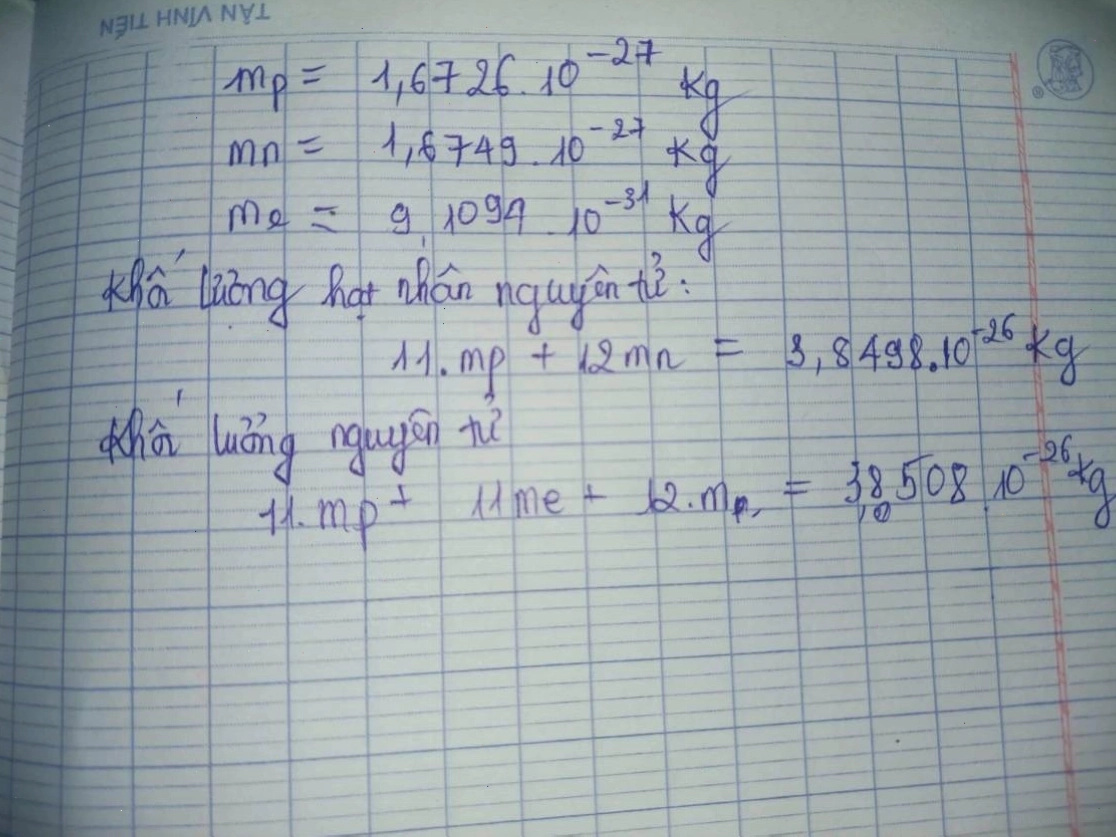 TÂN VĨNH TIẾN
mp = 1,6726.10^-27 kg
mn = 1,6749.10^-27 kg
me = 9,1094 10^-31 kg
Khối lượng hạt nhân nguyên tử:
11.mp + 12mn = 3,8498.10^-26 kg
Khối lượng nguyên tử
11.mp + 11me + 12.mn = 3,8508.10^-26 kg